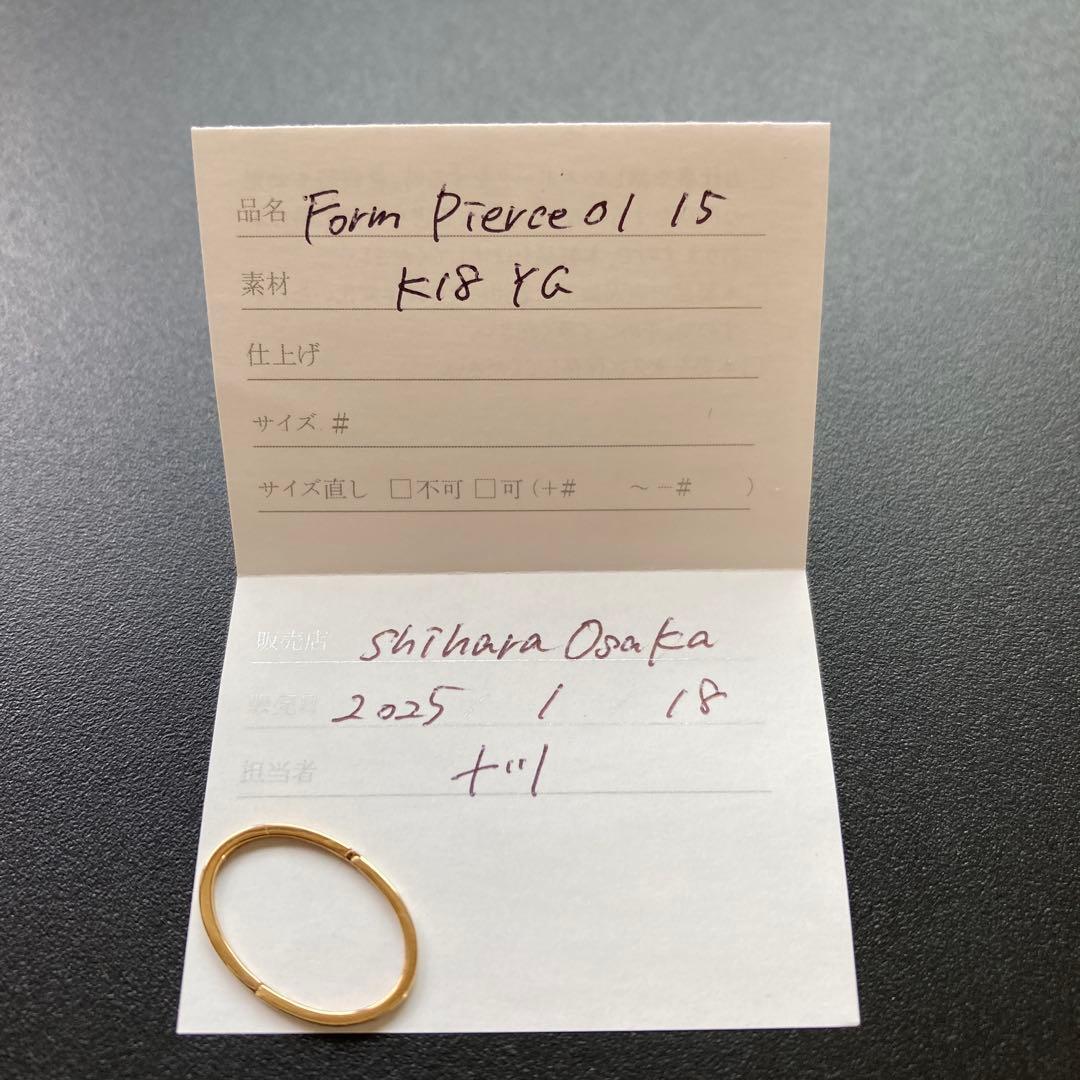 品名 Form Pierce 01 15
素材 K18 YG
仕上げ
サイズ #
サイズ直し □不可 □可 (+# ～ −# )
販売店 shihara Osaka
2025 1 18
担当者